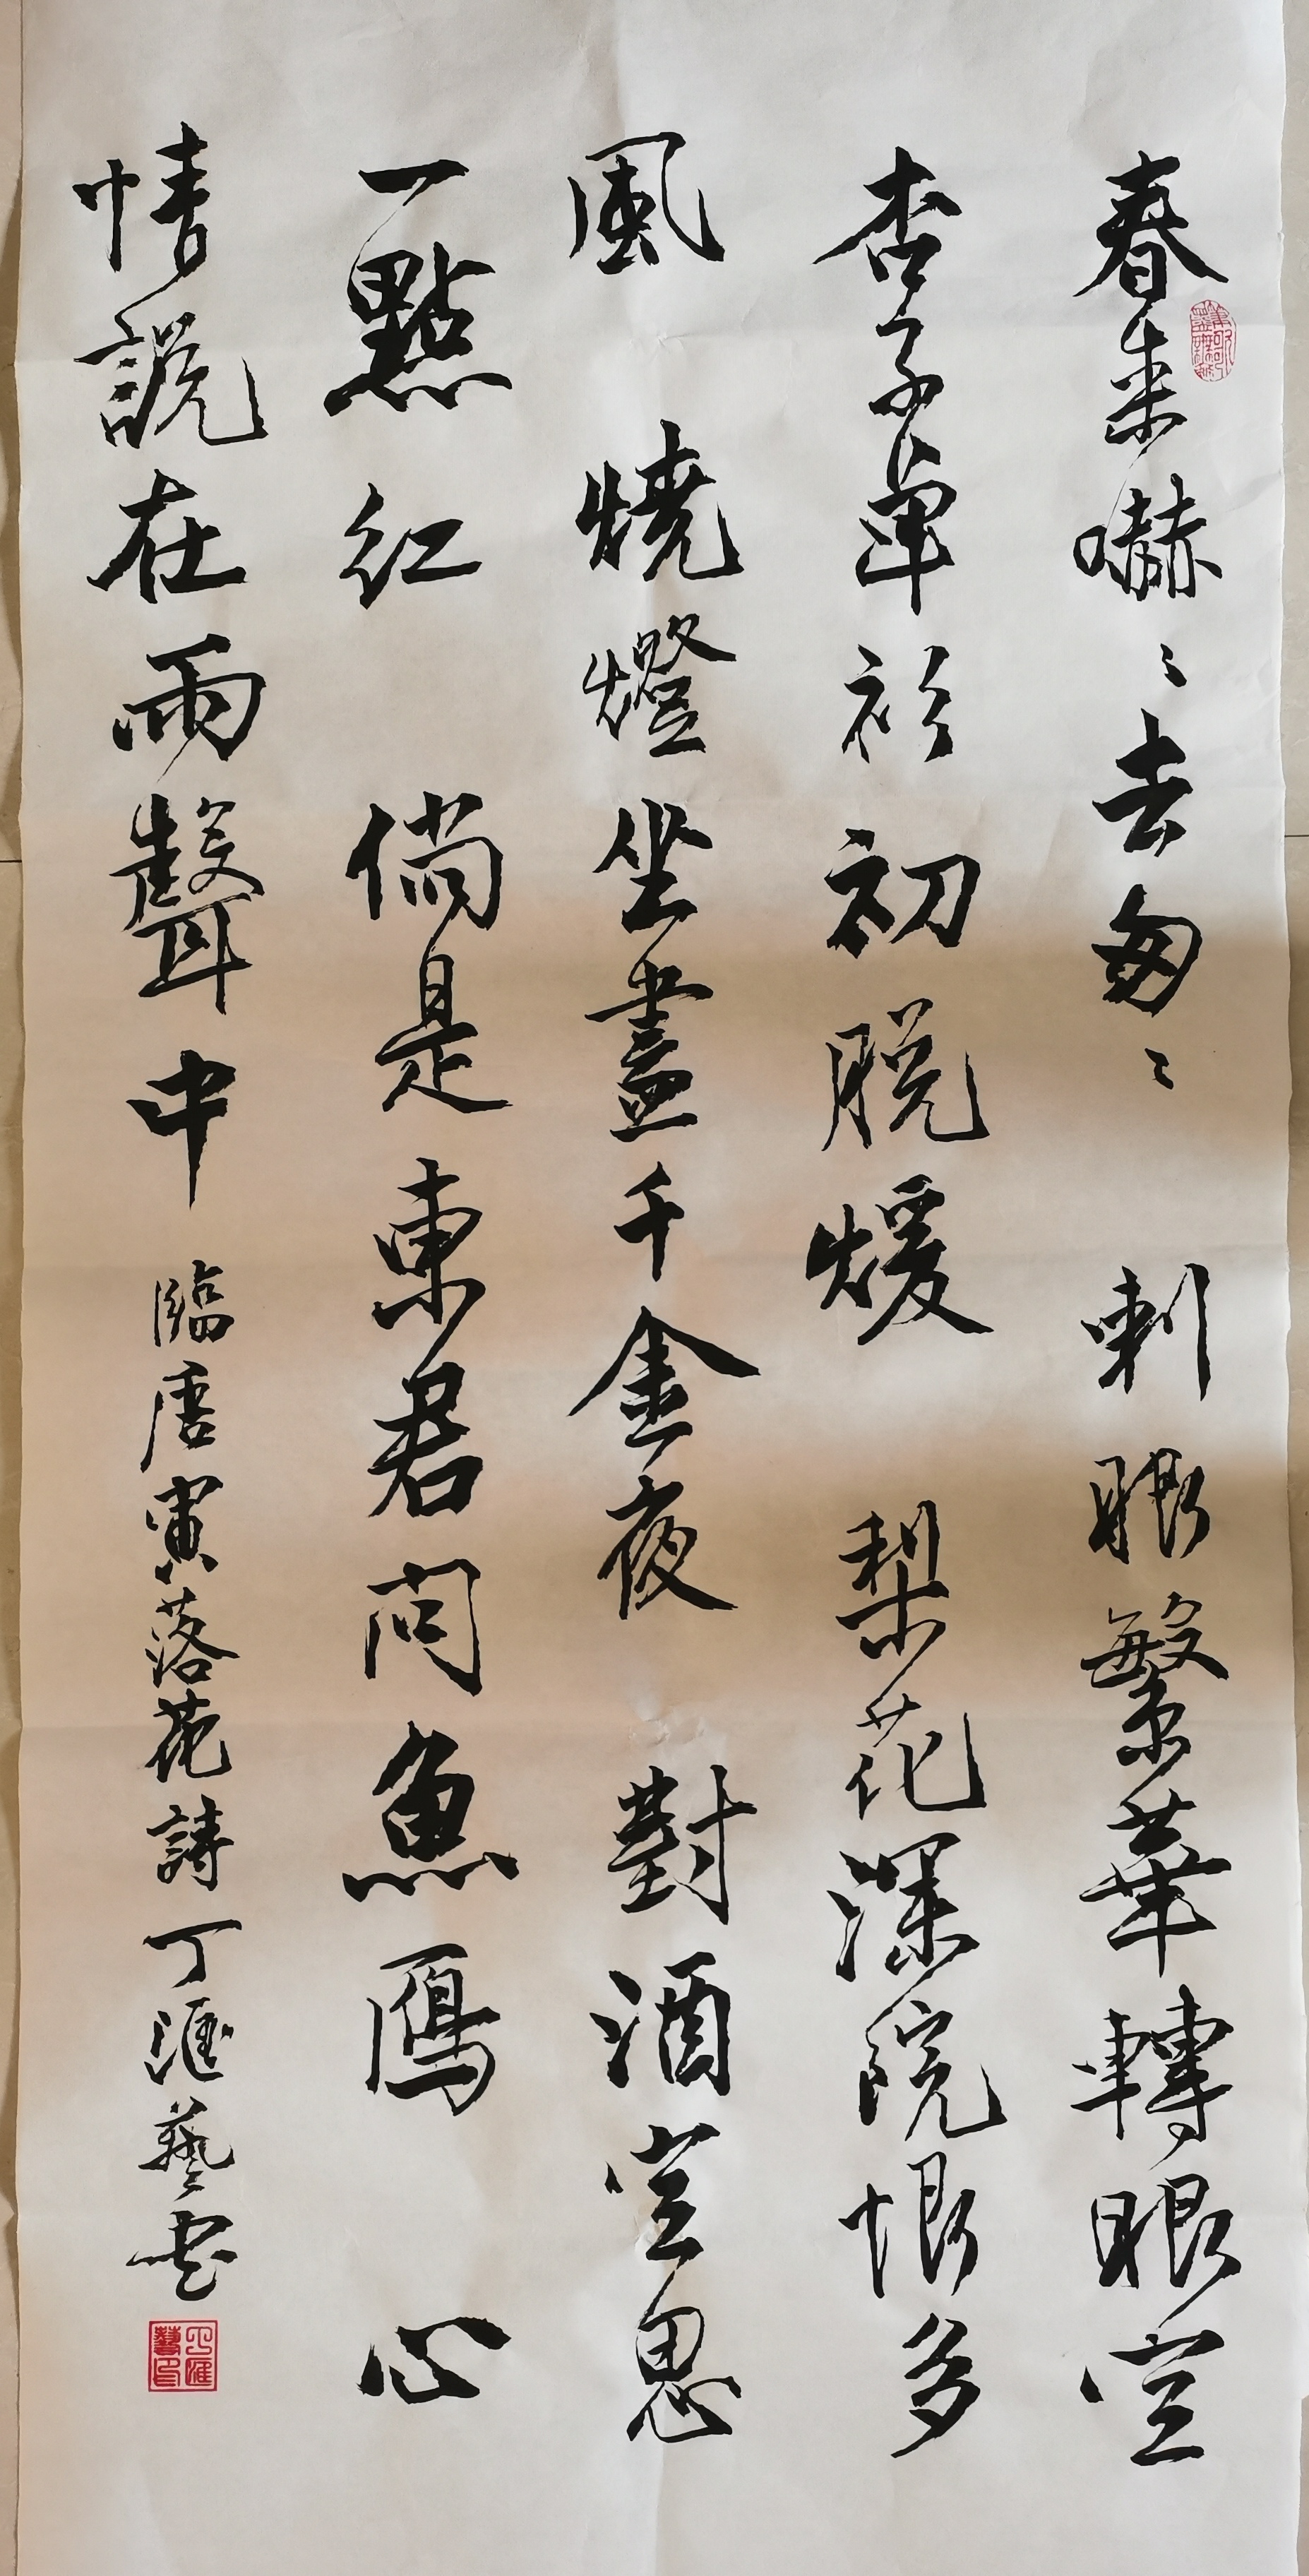 春来嚇〻去匆〻 刺眼繁華轉眼空
杏子單衫初脫煖 梨花深院恨多
風 燒燈坐盡千金夜 對酒空思
一點紅 倘是東君問魚鴈 心
情說在雨聲中 臨唐寅落花詩 丁滙藝書
丁滙藝印